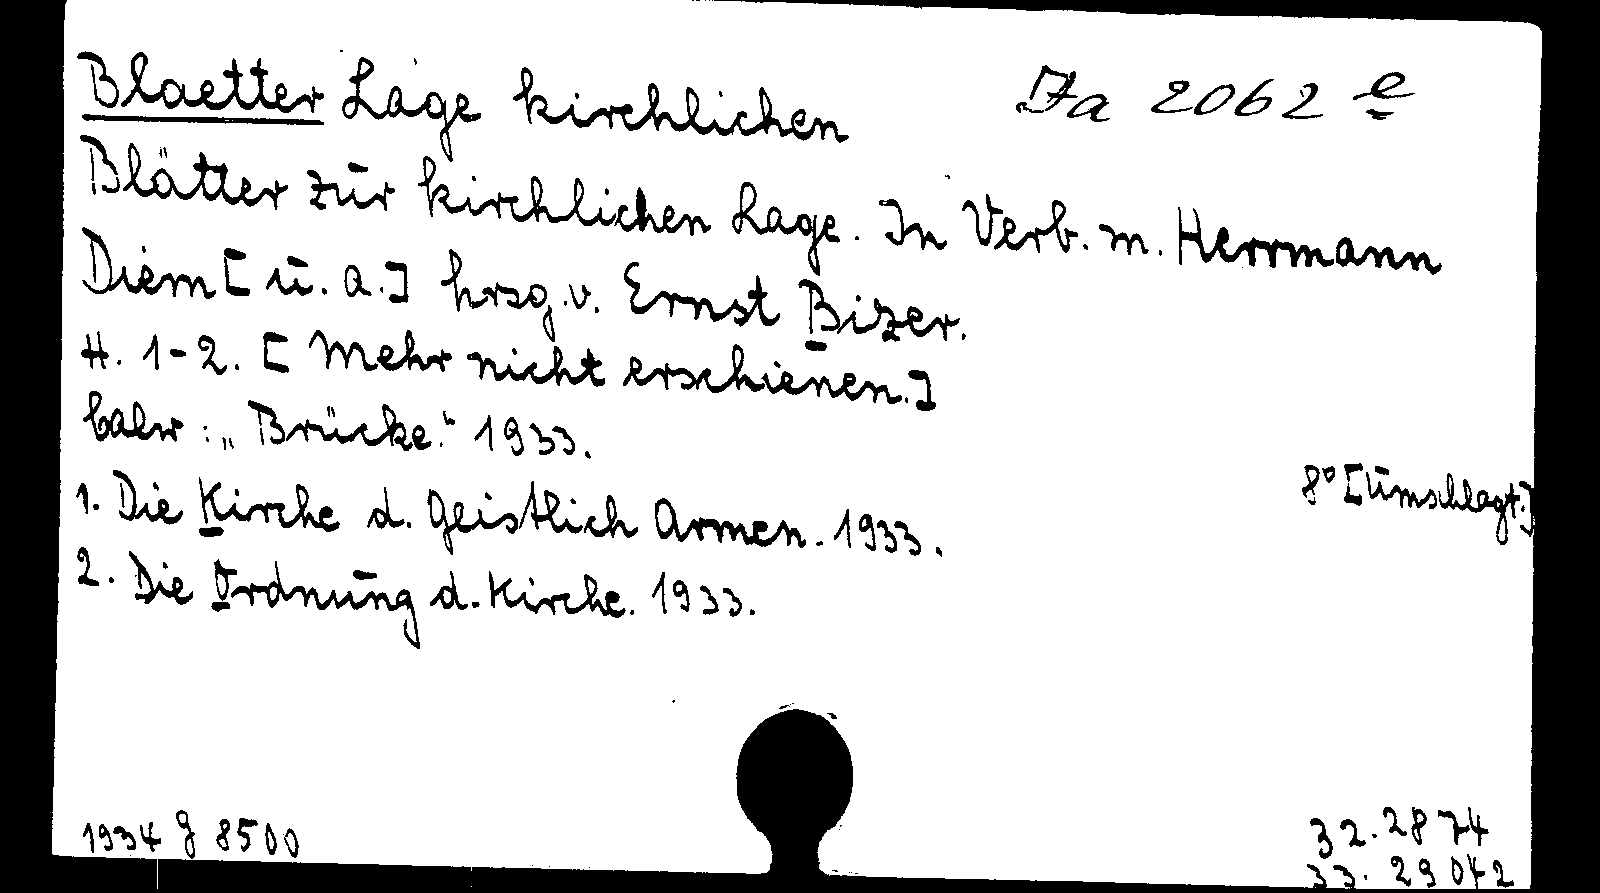 Blaetter Lage kirchlichen
Ia 2062 e
Blätter zur kirchlichen Lage. In Verb. m. Herrmann
Diem [u. a.] hrsg. v. Ernst Bizer.
H. 1-2. [Mehr nicht erschienen.]
Calw: „Brücke." 1933.
8° [Umschlagt.]
1. Die Kirche d. geistlich Armen. 1933.
2. Die Ordnung d. Kirche. 1933.
1934 g 8500
32.2874
33.29042